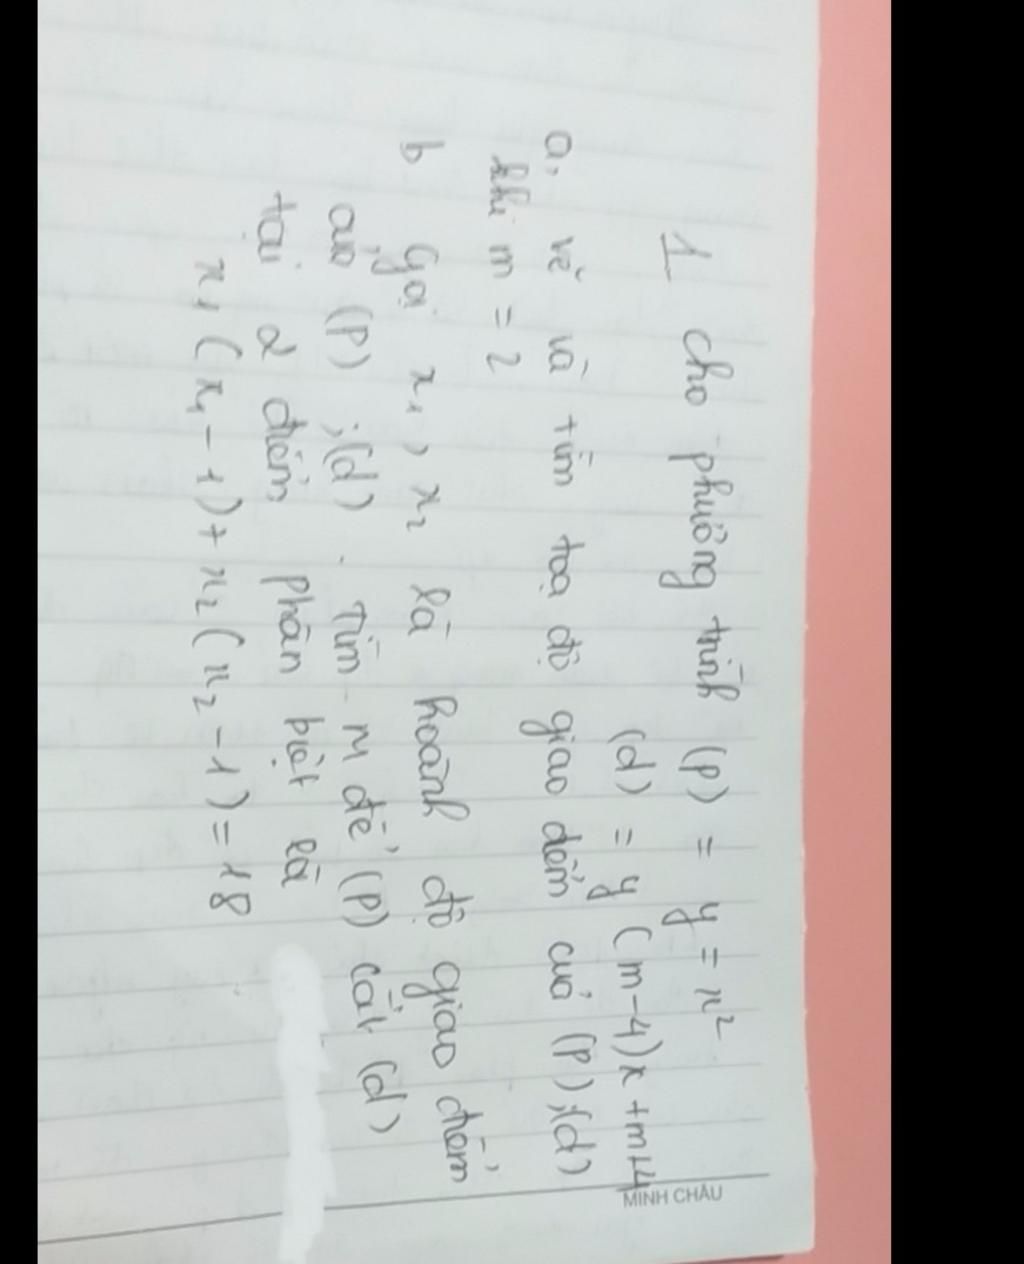 1 cho phương trình (P) = y = x²
(d) = y (m-4)x + m+4
a, vẽ và tìm toạ độ giao điểm của (P), (d)
khi m = 2
b Gọi x₁, x₂ là hoành độ giao điểm
của (P), (d). Tìm m để (P) cắt (d)
tại 2 điểm phân biệt là
x₁(x₁-1) + x₂(x₂-1) = 18
MINH CHÂU